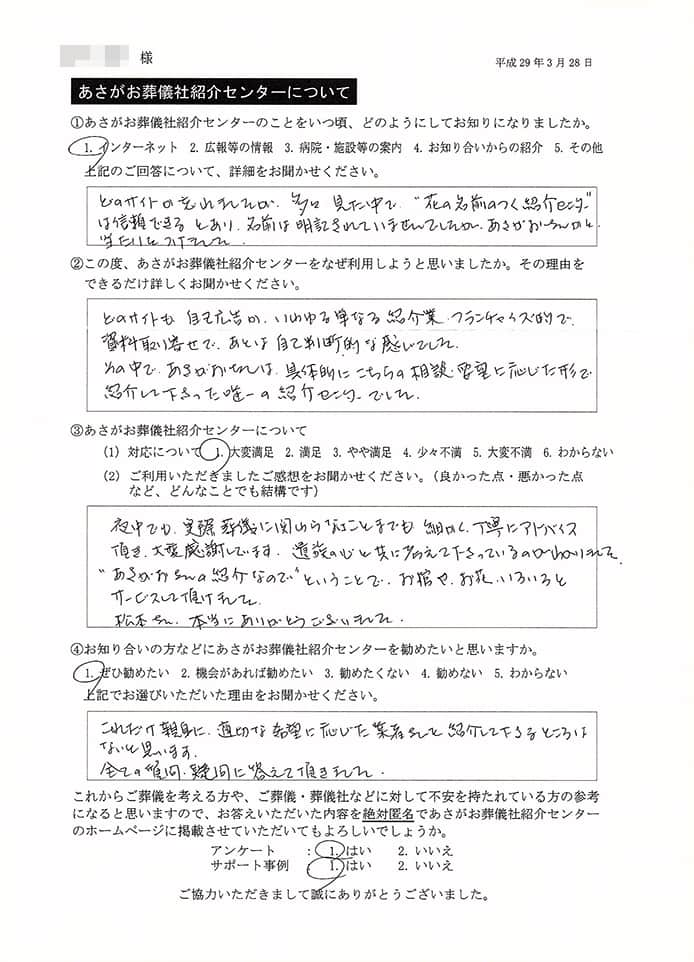 様
平成29年3月28日
あさがお葬儀社紹介センターについて
①あさがお葬儀社紹介センターのことをいつ頃、どのようにしてお知りになりましたか。
1. インターネット 2. 広報等の情報 3. 病院・施設等の案内 4. お知り合いからの紹介 5. その他
上記のご回答について、詳細をお聞かせください。
どのサイトか忘れましたが、多々見た中で、"花の名前のつく紹介センター"
は信頼できるとあり、名前は明記されていませんでしたが、あさがおさんかと、
当たりとつけました
②この度、あさがお葬儀社紹介センターをなぜ利用しようと思いましたか。その理由を
できるだけ詳しくお聞かせください。
どのサイトも自己広告か、いわゆる単なる紹介業、フランチャイズ的で、
資料取り寄せで、あとは自己判断的な感じでした。
その中で、あさがおさんは、具体的にこちらの相談・要望に応じた形で
紹介して下さった唯一の紹介センターでした。
③あさがお葬儀社紹介センターについて
(1) 対応について 1. 大変満足 2. 満足 3. やや満足 4. 少々不満 5. 大変不満 6. わからない
(2) ご利用いただきましたご感想をお聞かせください。(良かった点・悪かった点
など、どんなことでも結構です)
夜中でも、実際葬儀に関わらないことまでも細かく、丁寧にアドバイス
頂き、大変感謝しています。遺族の心と共に考えて下さっているのがわかりました。
"あさがおさんの紹介なので"ということで、お棺や、お花、いろいろと
サービスして頂けました。
松本さん、本当にありがとうございました。
④お知り合いの方などにあさがお葬儀社紹介センターを勧めたいと思いますか。
1. ぜひ勧めたい 2. 機会があれば勧めたい 3. 勧めたくない 4. 勧めない 5. わからない
上記でお選びいただいた理由をお聞かせください。
これだけ親身に、適切な希望に応じた業者さんを紹介して下さるところは
ないと思います。
全ての質問・疑問に答えて頂きました。
これからご葬儀を考える方や、ご葬儀・葬儀社などに対して不安を持たれている方の参考
になると思いますので、お答えいただいた内容を絶対匿名であさがお葬儀社紹介センター
のホームページに掲載させていただいてもよろしいでしょうか。
アンケート : 1. はい 2. いいえ
サポート事例 1. はい 2. いいえ
ご協力いただきまして誠にありがとうございました。